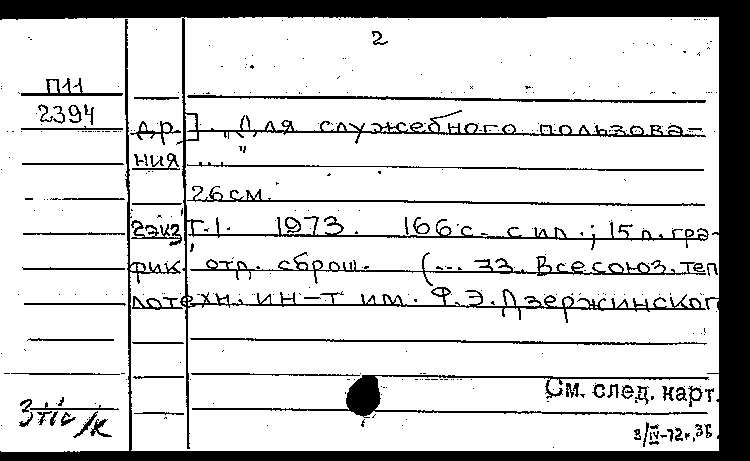 2
П11
2394
др.]. "Для служебного пользова-
ния ..."
26 см.
2экз Т.1. 1973. 166 с. с ил.; 15 л. гра-
фик. отд. сброш. (... 33. Всесоюз. теп
лотехн. ин-т им. Ф.Э. Дзержинского
См. след. карт.